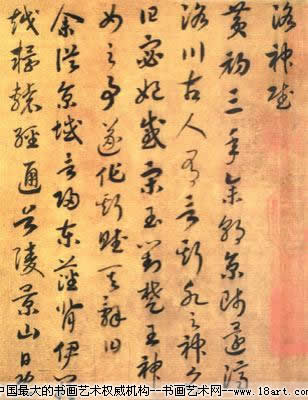 洛神賦
黃初三年余朝京師還濟
洛川古人有言斯水之神名
曰宓妃感宋玉對楚王神
女之事遂作斯賦其辭曰
余從京域言歸東藩背伊
越轘轅經通谷陵景山日
中国最大的书画艺术权威机构--书画艺术网--www.18art.